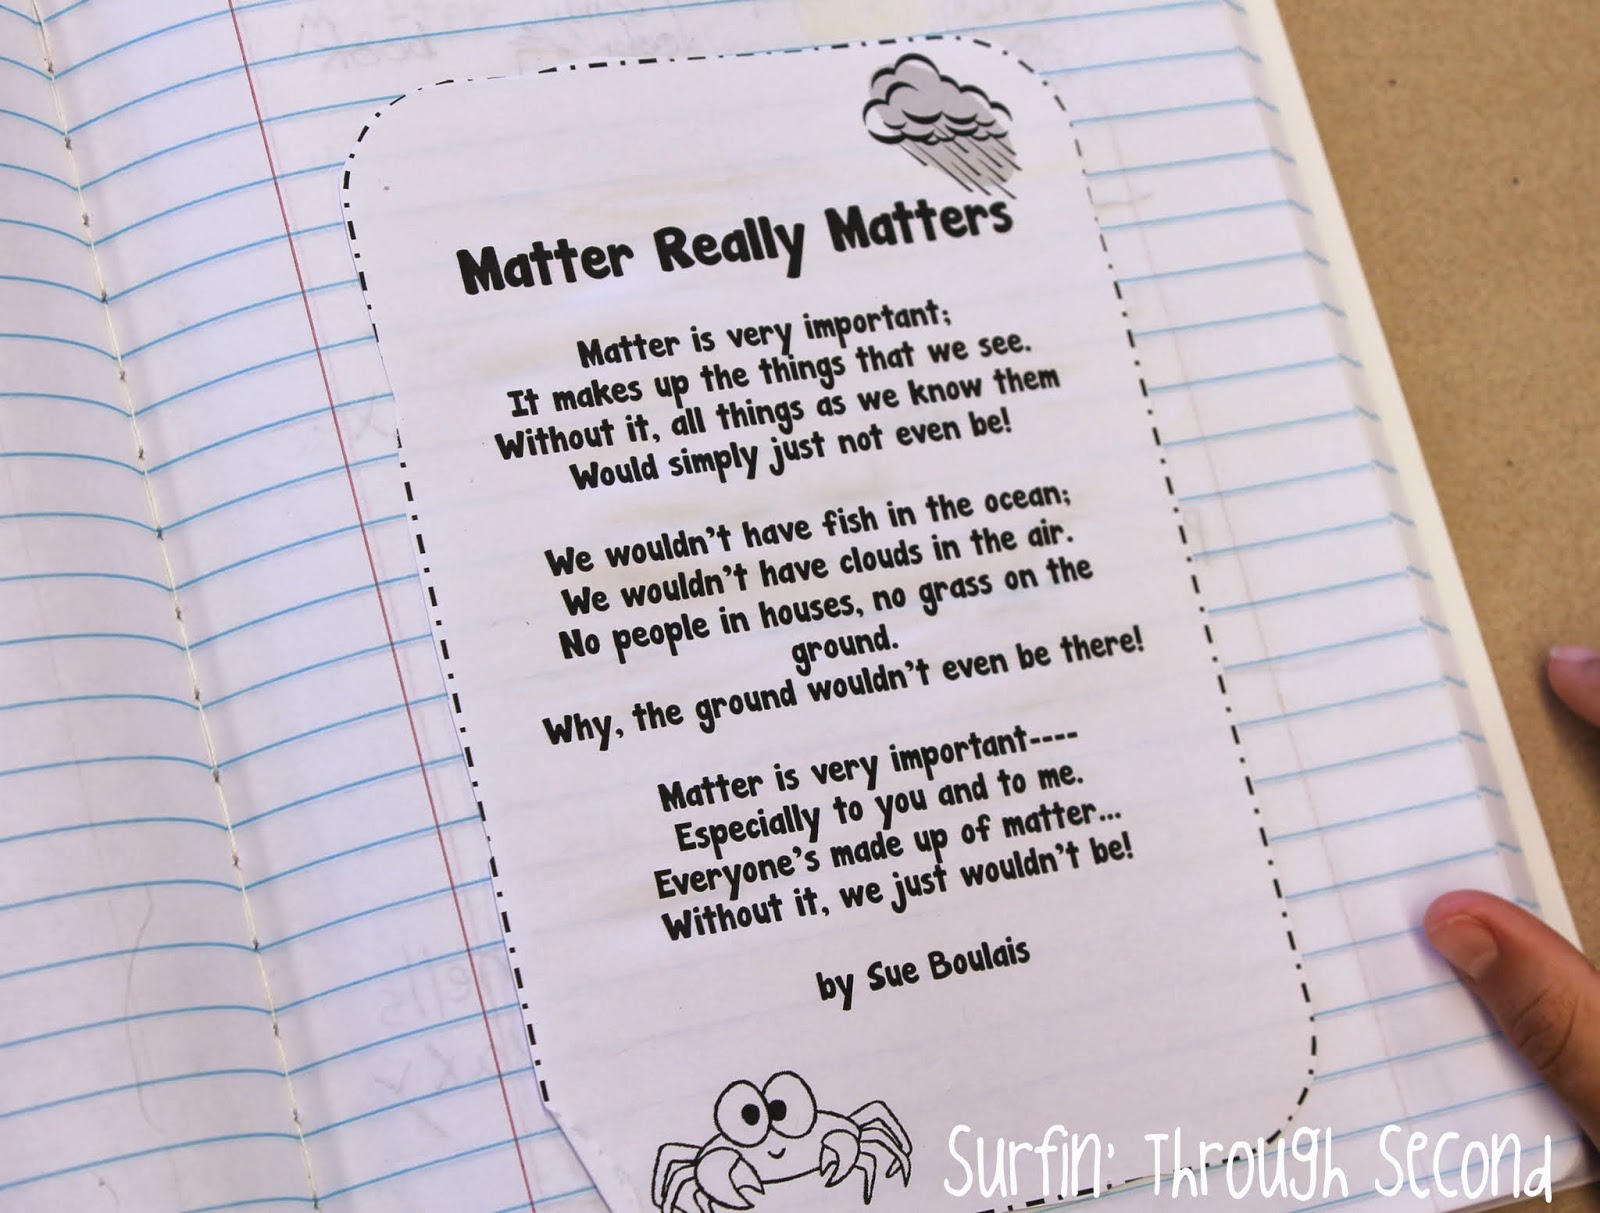 Matter Really Matters
Matter is very important;
It makes up the things that we see.
Without it, all things as we know them
Would simply just not even be!
We wouldn't have fish in the ocean;
We wouldn't have clouds in the air.
No people in houses, no grass on the
ground.
Why, the ground wouldn't even be there!
Matter is very important----
Especially to you and to me.
Everyone's made up of matter...
Without it, we just wouldn't be!
by Sue Boulais
Surfin' Through Second